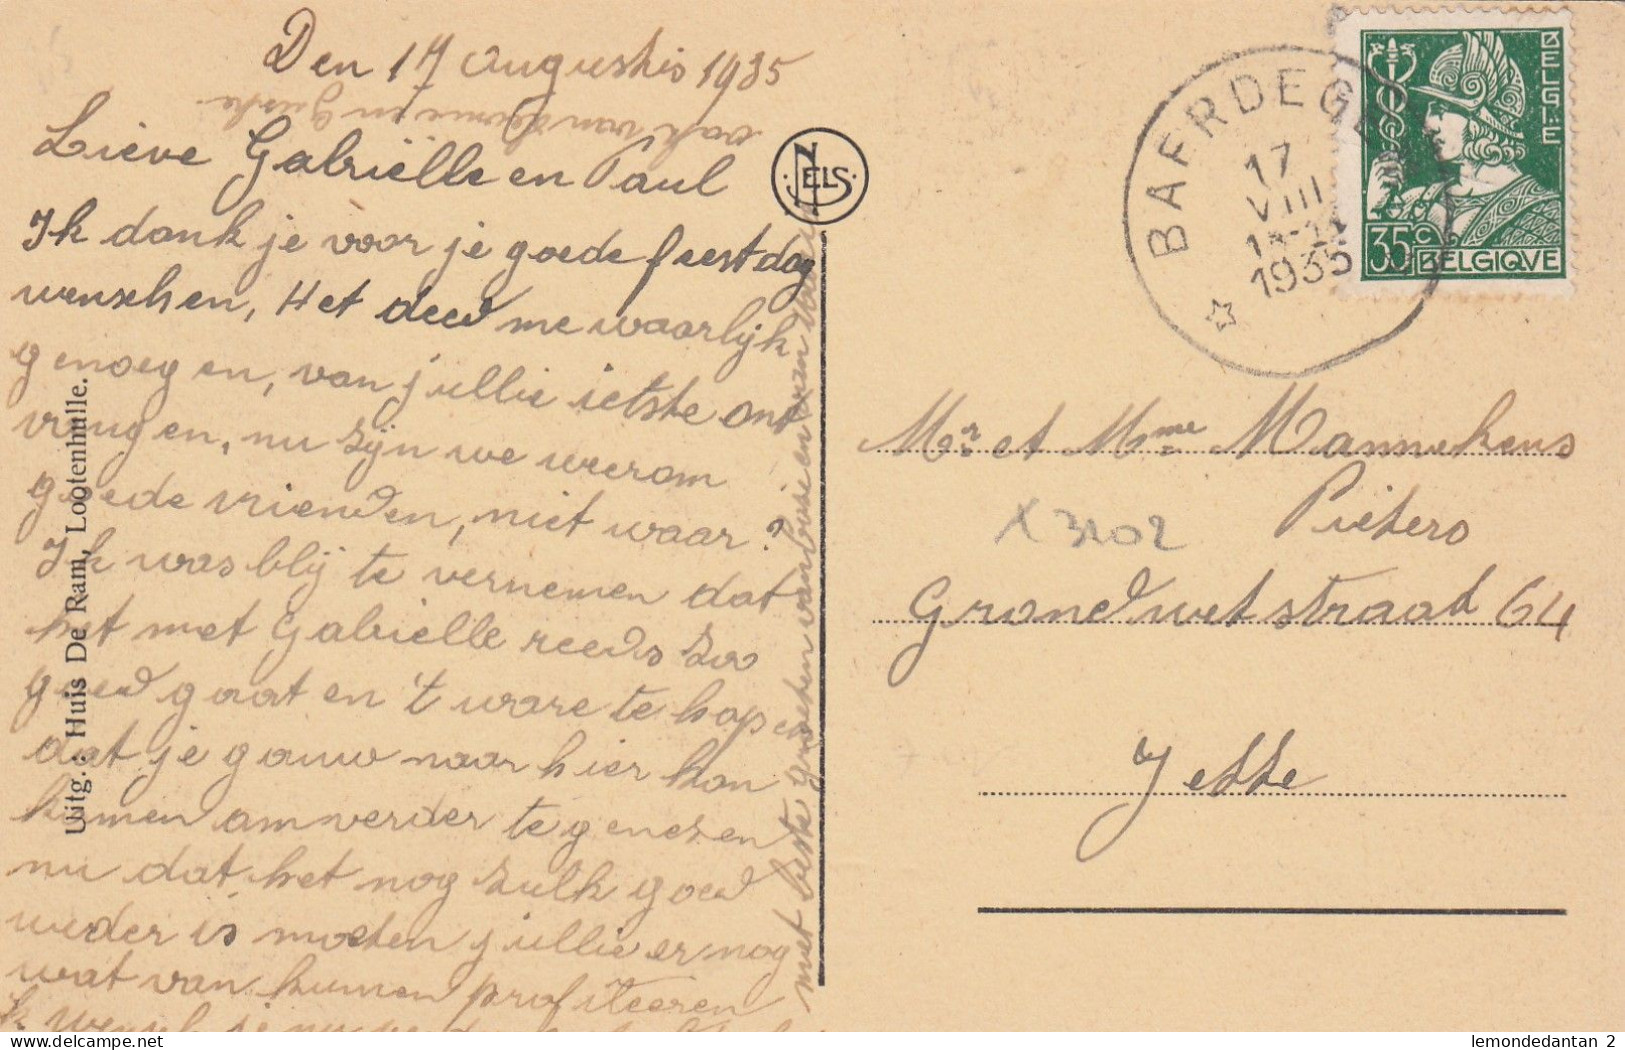 Den 17 Augustus 1935
ook van Leonie en Juske
Lieve Gabriëlle en Paul
Ik dank je voor je goede feestdag
wenschen, Het deed me waarlijk
genoegen, van jullie ietske ont
vangen, nu zijn we weerom
goede vrienden, niet waar?
Ik was blij te vernemen dat
het met Gabriëlle reeds zoo
goed gaat en 't ware te hopen
dat je gauw naar hier kon
komen om verder te genezen
nu dat het nog zulk goed
weder is moeten jullie er nog
wat van kunnen profiteeren
met beste groeten van Louise en
Uitg.: Huis De Ram, Lootenhulle.
NELS
BAERDEGE
17
VIII
1935
BELGIE
35c
BELGIQVE
Mr et Mme Mannekens
Pieters
X 3202
Grondwetstraat 64
Jette
lemondedantan 2